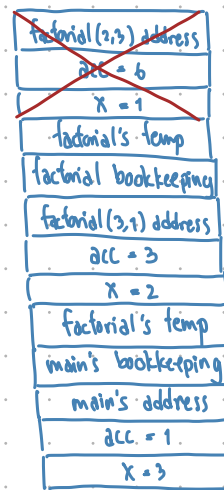 factorial(2,3) address
acc = 6
x = 1
factorial's temp
factorial bookkeeping
factorial(3,1) address
acc = 3
x = 2
factorial's temp
main's bookkeeping
main's address
acc. = 1
x = 3